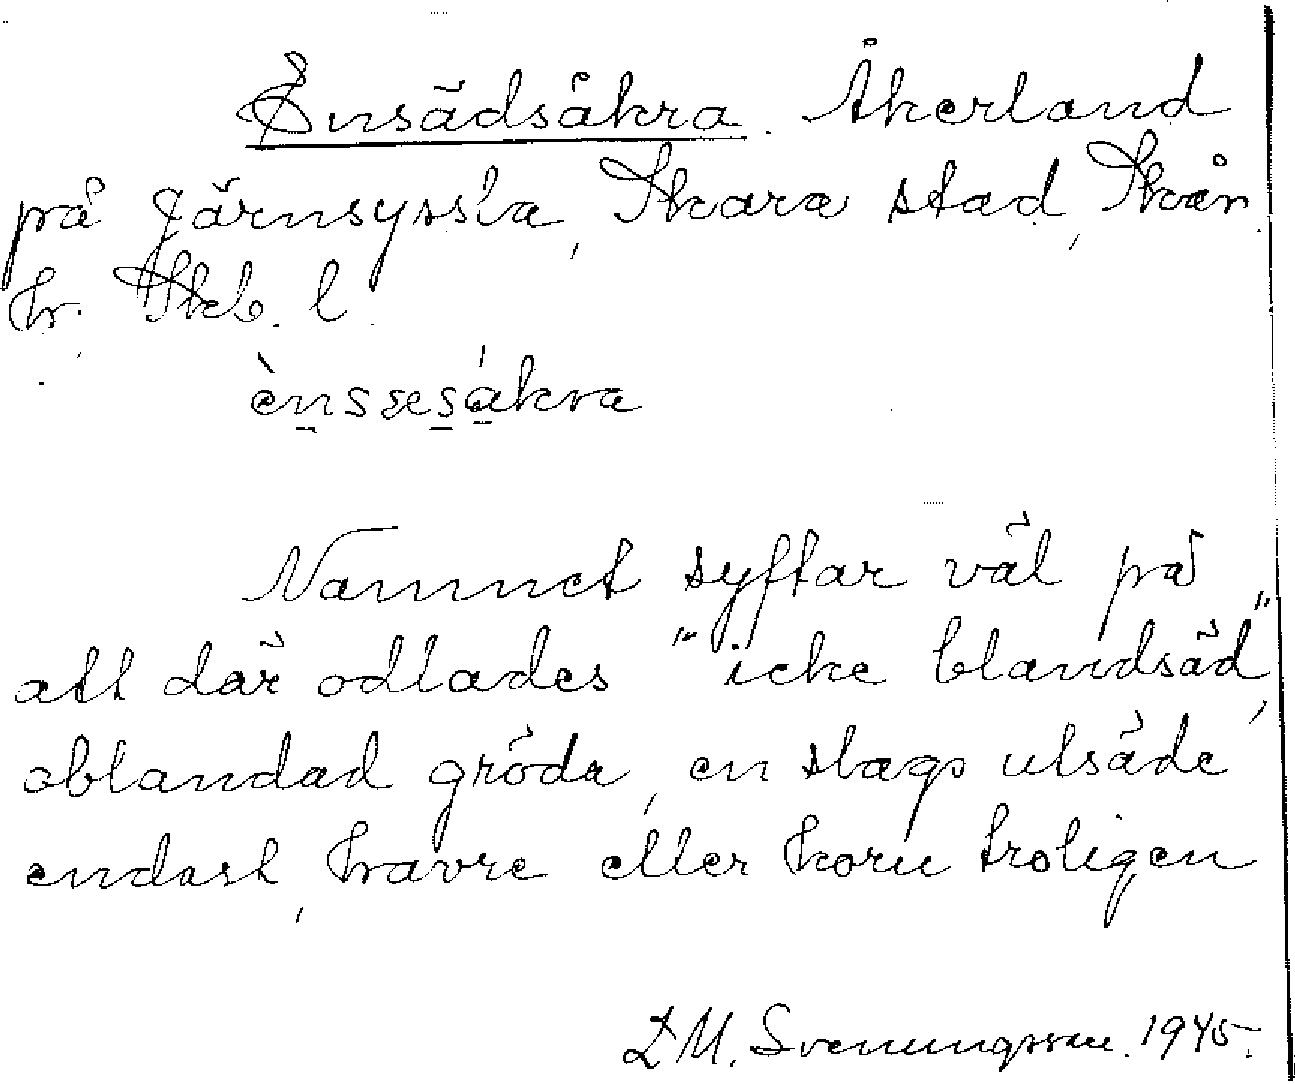 Ensädsåkra. Åkerland
på Järnsyssla, Skara stad, Skån
hr. Skb. l.
ènssesákra
Namnet syftar väl på
att där odlades "icke blandsäd",
oblandad gröda, en slags utsäde
endast, havre eller korn troligen
D M. Svenungsson. 1945.